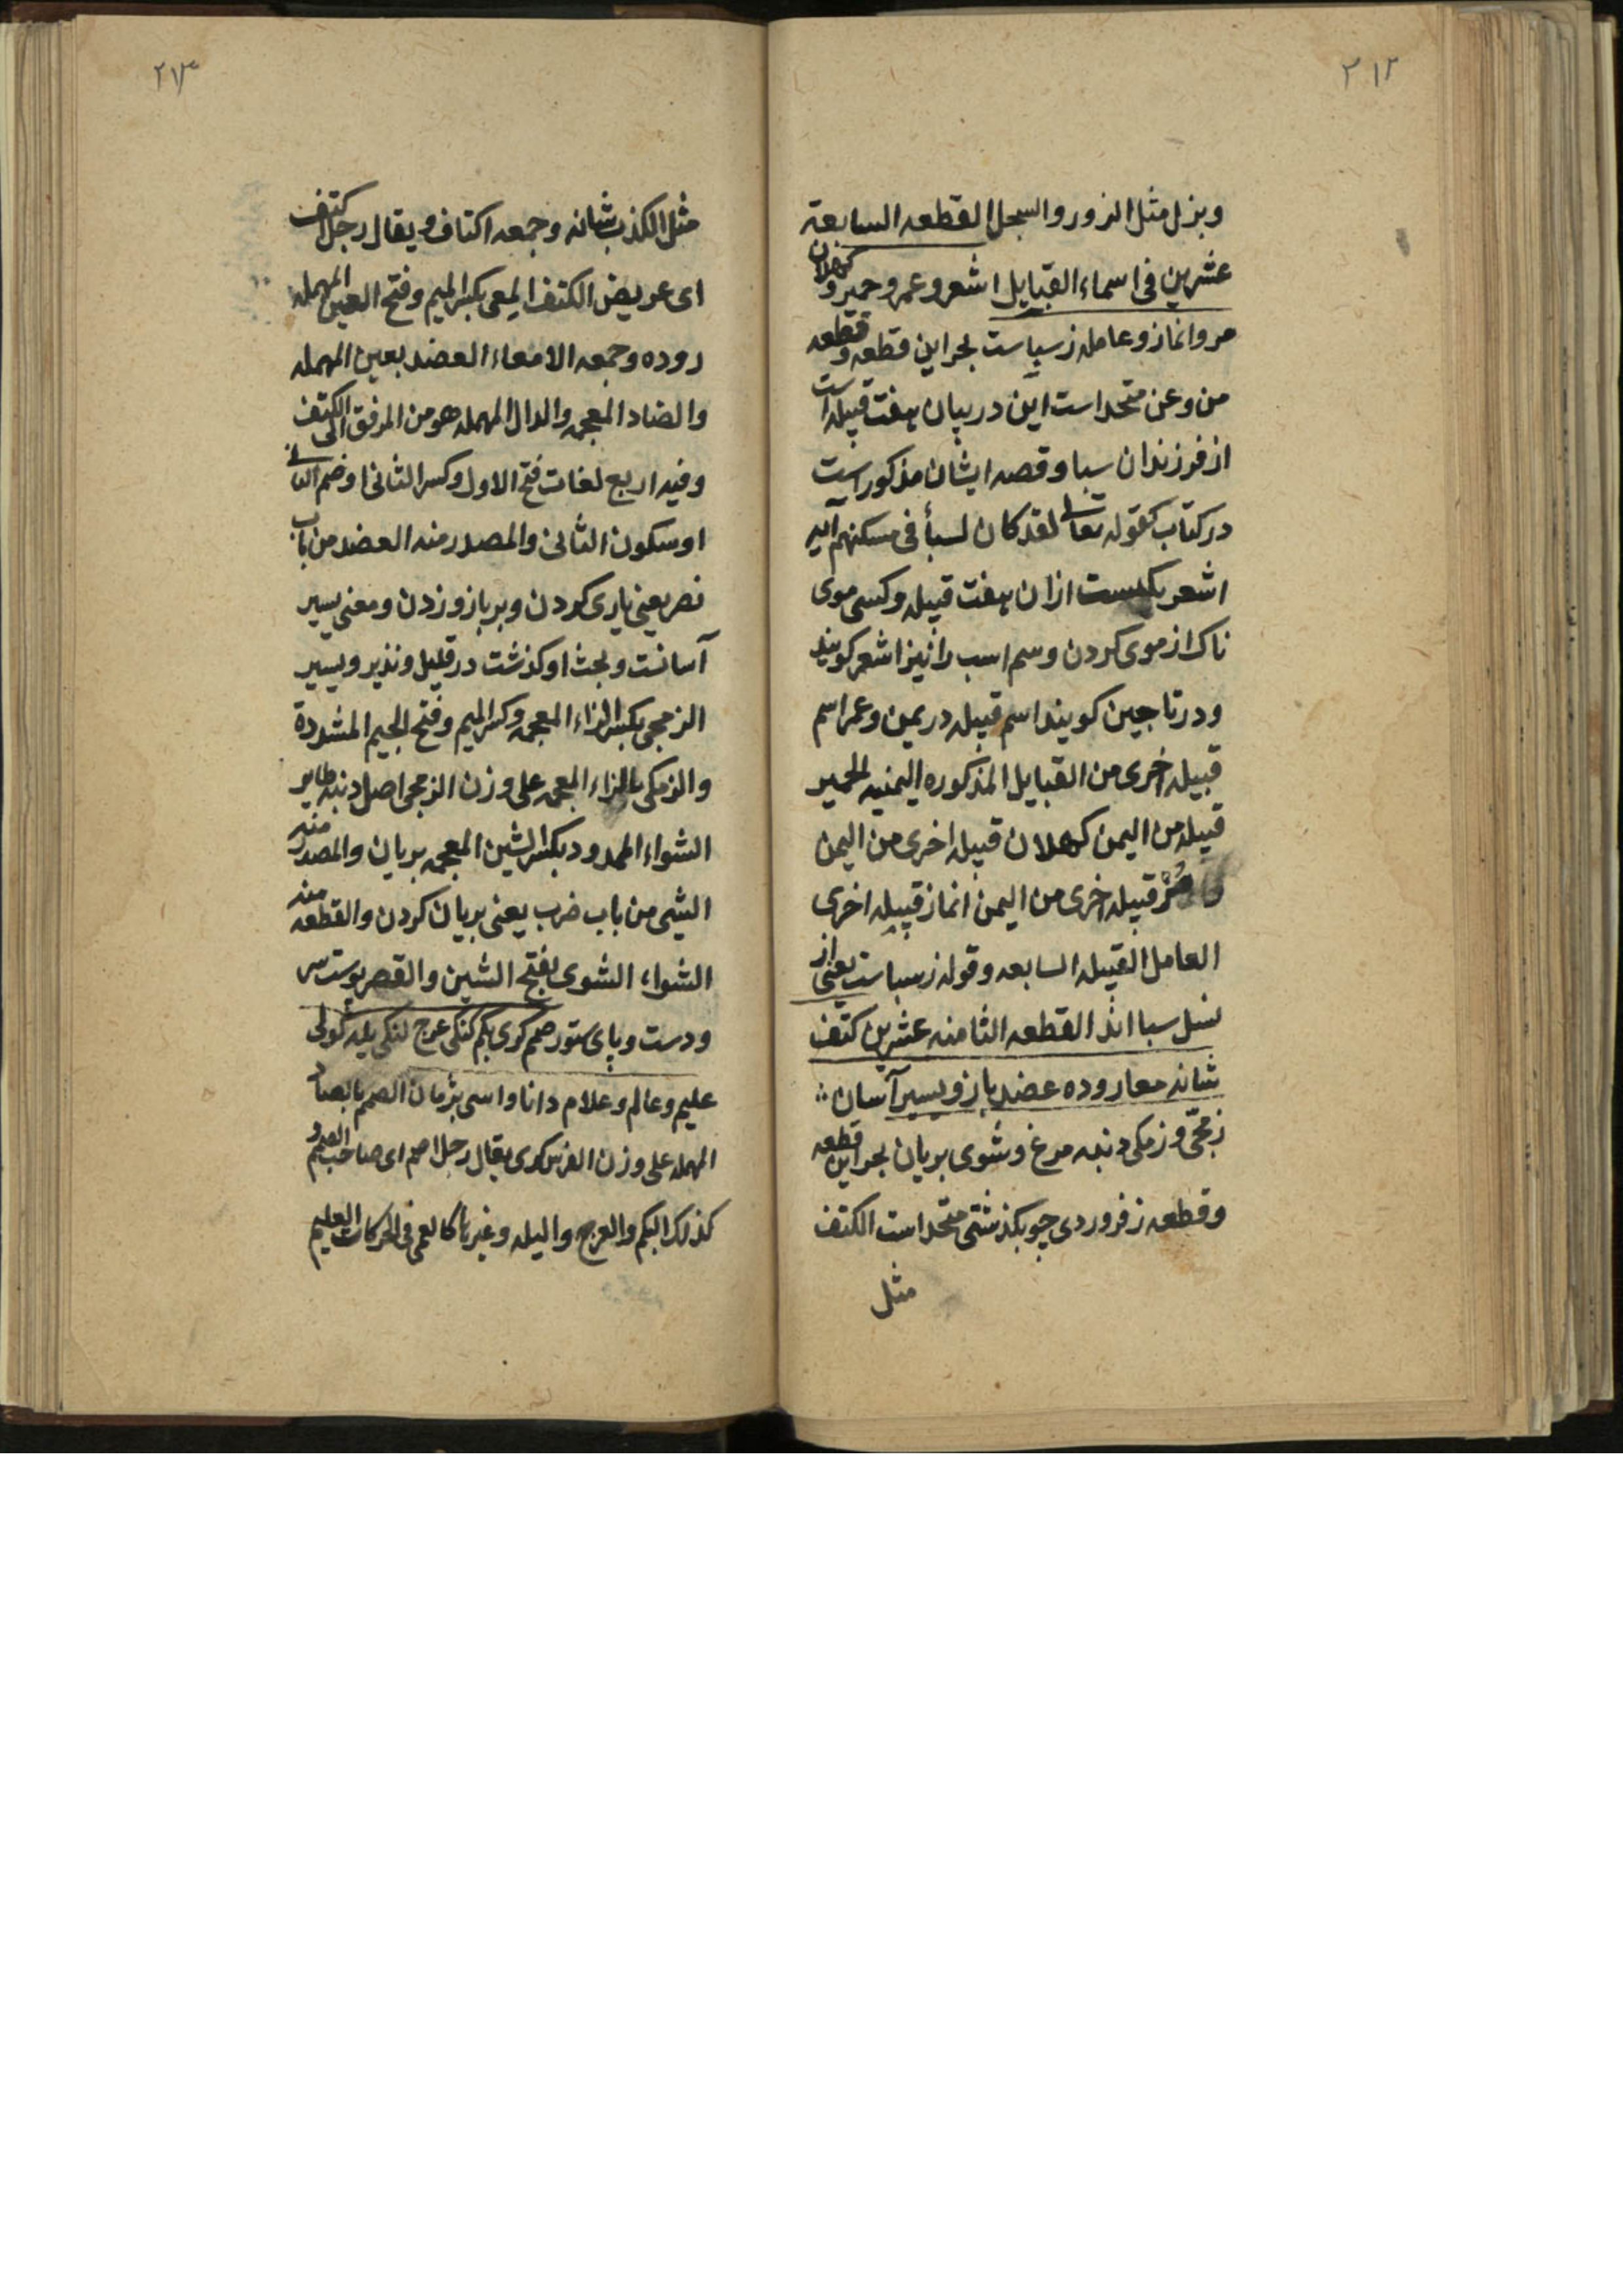 ٢١٢
وبزل مثل الزور والسجل القطعه السابعة
عشرين فی اسماء القبایل اشعر و عمر و حمیر و کهلان
مر و انماز و عامله ز سباست بحر این قطعه و قطعه
من و عن متحد است این در بیان هفت قبیله است
از فرزندان سبا و قصه ایشان مذکور است
در کتاب کقوله تعالی لقد کان لسبأ فی مسکنهم آیه
اشعر یکیست ازان هفت قبیله و کسی موی
ناک از موی کردن و سم اسب را نیز اشعر کویند
ودر تاجین کویند اسم قبیله در یمن و عمر اسم
قبیله اخری من القبایل المذکوره الیمنیه الحمیر
قبیله من الیمن کهلان قبیله اخری من الیمن
مر قبیله اخری من الیمن انماز قبیله اخری
العامل القبیله السابعه و قوله ز سباست یعنی از
نسل سبا اند القطعه الثامنه عشرین کتف
شانه معا روده عضد بازو یسیر آسان
زمجی و زمکی دنبه مرغ و شوی بریان بحر این قطعه
و قطعه ز فروردی چو بکذشتی متحد است الکتف
مثل
٢١٣
مثل الکذب شانه و جمعه اکتاف و یقال رجل اکتف
ای عریض الکتف المعی بکسر المیم و فتح العین المهمله
روده و جمعه الامعاء العضد بعین المهمله
والضاد المعجمه والدال المهمله هو من المرفق الی الکتف
وفیه اربع لغات فتح الاول وکسر الثانی او ضم الثانی
او سکون الثانی والمصدر منه العضد من باب
نصر یعنی یاری کردن و بر بازو زدن و معنی یسیر
آسانست و بحث او کذشت در قلیل و نذیر و یسیر
الزمجی بکسر الزاء المعجمه و کسر المیم و فتح الجیم المشددة
والزمکی بالزاء المعجمه علی وزن الزمجی اصل دنبه طایر
الشواء الممدود بکسر الشین المعجمه بریان والمصدر منه
الشی من باب ضرب یعنی بریان کردن والقطعه منه
الشواء، الشوی بفتح الشین والقصر پوست سر
ودست و پای ستور صمم کری بکم کنکی عرج لنکی بله کولی
علیم و عالم و علام دانا و اسی پژمان الصمم بالصاد
المهمله علی وزن الفرس کری یقال رجل اصم ای صاحب الصمم و
کذلک البکم والعرج والبله و غیرها کالعمی فی الحرکات العلیم